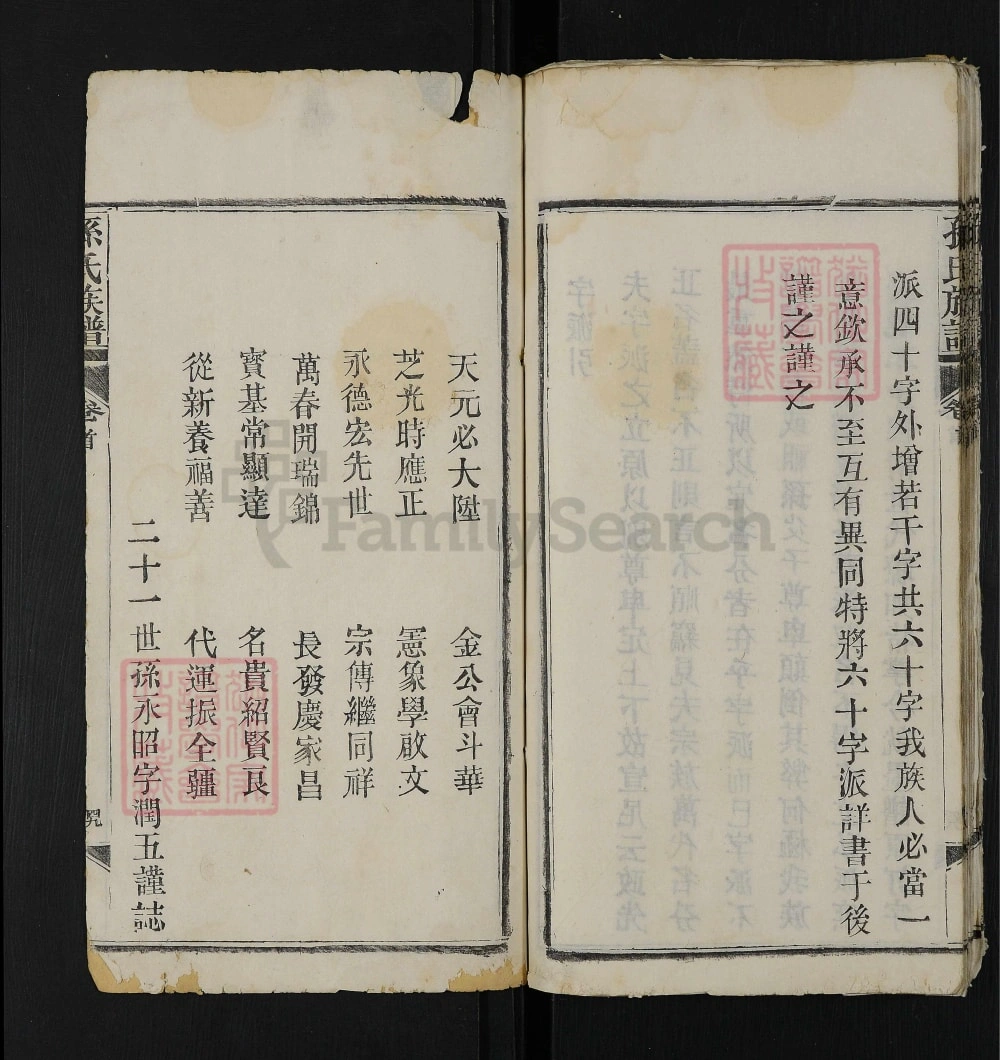 孫氏族譜
卷首
派四十字外增若干字共六十字我族人必當一
意欽承不至互有異同特將六十字派詳書于後
謹之謹之
天元必大陞 金公會斗華
芝光時應正 憲象學啟文
永德宏先世 宗傳繼同祥
萬春開瑞錦 長發慶家昌
寶基常顯達 名貴紹賢良
從新養福善 代運振全疆
二十一世孫永昭字潤五謹誌
孫氏族譜
卷首
FamilySearch